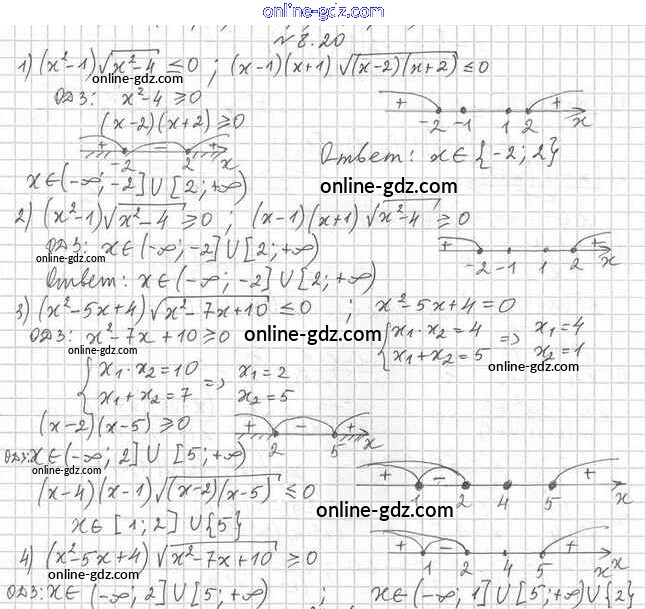 online-gdz.com
№ 8.20
1) (x²-1)√(x²-4) ≤ 0 ; (x-1)(x+1)√((x-2)(x+2)) ≤ 0
online-gdz.com
ОДЗ: x²-4 ≥ 0
(x-2)(x+2) ≥ 0
+ - + -2 2 x
+ + -2 -1 1 2 x
Ответ: x∈{-2; 2}
x∈(-∞; -2]∪[2; +∞)
online-gdz.com
2) (x²-1)√(x²-4) ≥ 0 ; (x-1)(x+1)√(x²-4) ≥ 0
ОДЗ: x∈(-∞; -2]∪[2; +∞)
+ + -2 -1 1 2 x
online-gdz.com
Ответ: x∈(-∞; -2]∪[2; +∞)
3) (x²-5x+4)√(x²-7x+10) ≤ 0 ; x²-5x+4=0
ОДЗ: x²-7x+10 ≥ 0
online-gdz.com
{ x₁·x₂=4 => x₁=4
x₁+x₂=5 x₂=1
online-gdz.com
online-gdz.com
{ x₁·x₂=10 => x₁=2
x₁+x₂=7 x₂=5
(x-2)(x-5) ≥ 0
+ - + 2 5 x
ОДЗ: x∈(-∞; 2]∪[5; +∞)
online-gdz.com
+ - + 1 2 4 5 x
(x-4)(x-1)√((x-2)(x-5)) ≤ 0
online-gdz.com
x∈[1; 2]∪{5}
4) (x²-5x+4)√(x²-7x+10) ≥ 0
+ - + 1 2 4 5 x x
online-gdz.com
ОДЗ: x∈(-∞; 2]∪[5; +∞) ; x∈(-∞; 1]∪[5; +∞)∪{2}
online-gdz.com